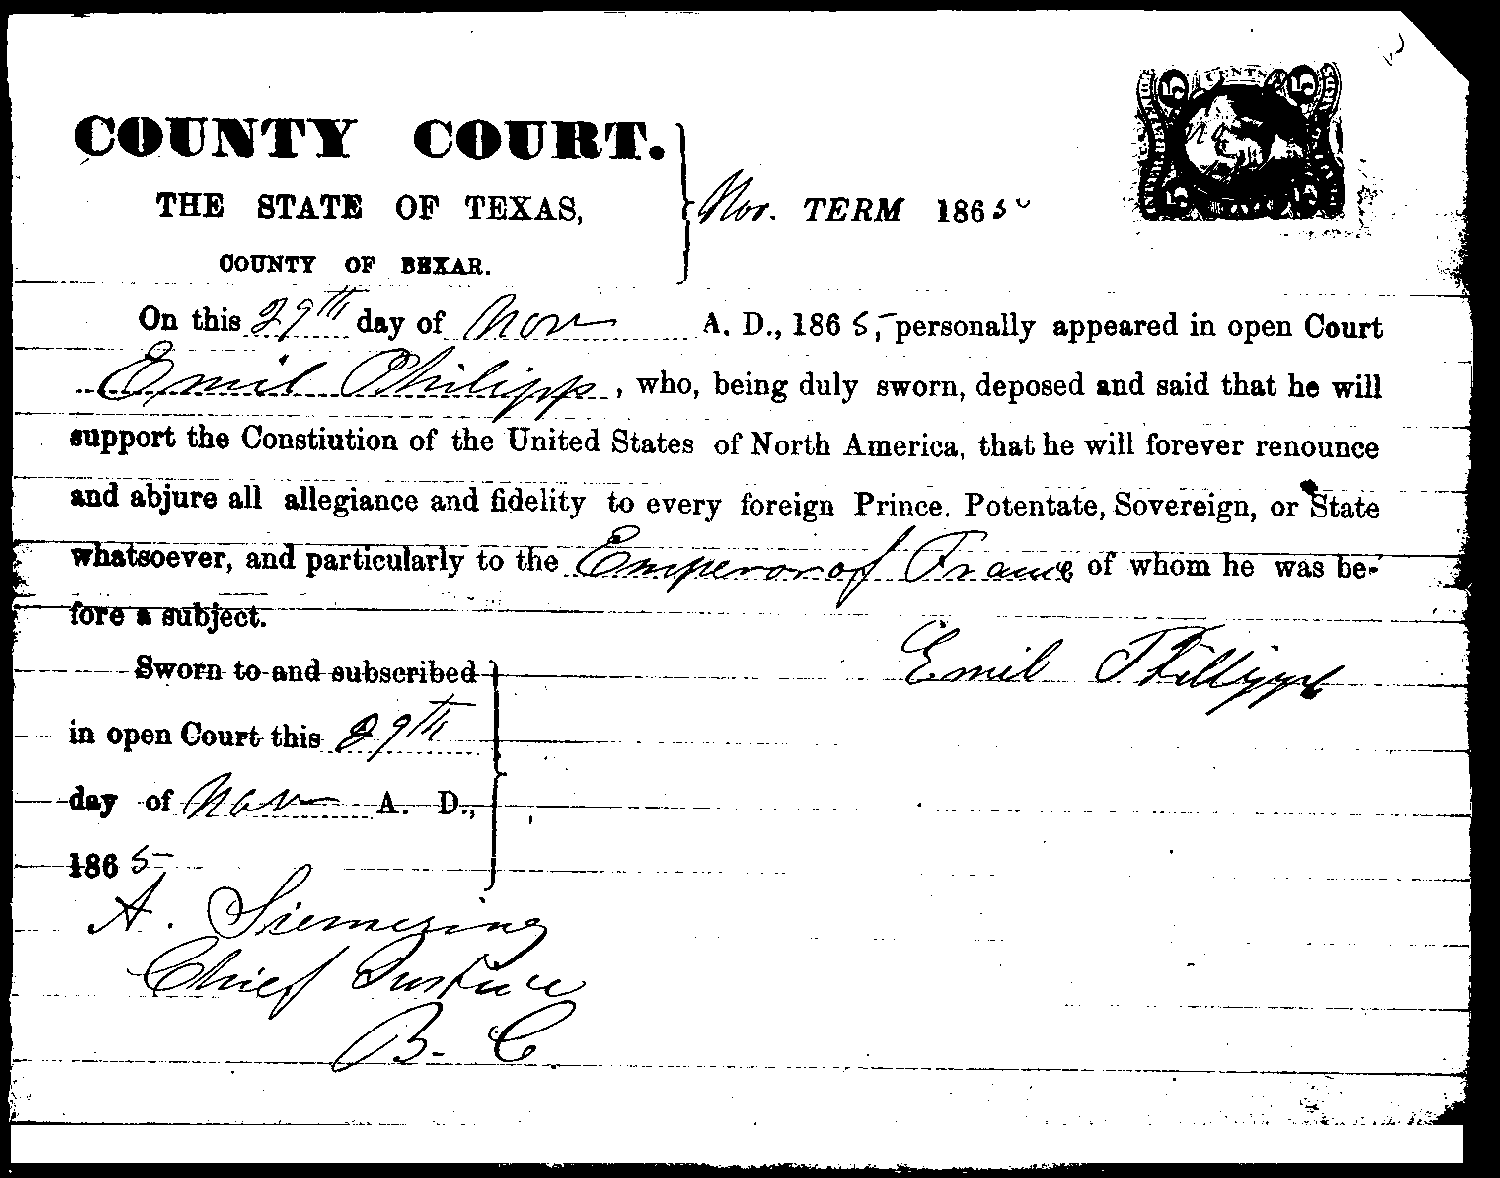 COUNTY COURT.
THE STATE OF TEXAS,
COUNTY OF BEXAR.
Nov. TERM 1865
5 CENTS 5
5 5
On this 29th day of Nov A. D., 1865, personally appeared in open Court
Emil Philipp, who, being duly sworn, deposed and said that he will
support the Constiution of the United States of North America, that he will forever renounce
and abjure all allegiance and fidelity to every foreign Prince. Potentate, Sovereign, or State
whatsoever, and particularly to the Emperor of France of whom he was be-
fore a subject.
Emil Phillipp
Sworn to and subscribed
in open Court this 29th
day of Nov A. D.,
1865
A. Siemering
Chief Justice
B. C.